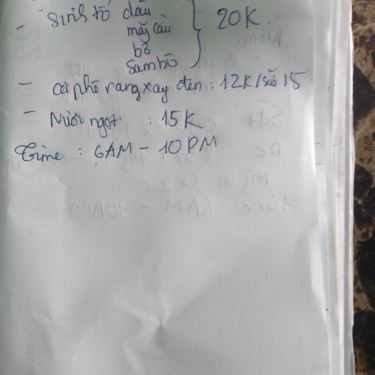 - Sinh tố dâu } 20K.
mãng cầu
bơ
Sambô
- Cà phê rang xay đen : 12K/sữa 15
- Nước ngọt : 15K
Time : 6AM - 10PM